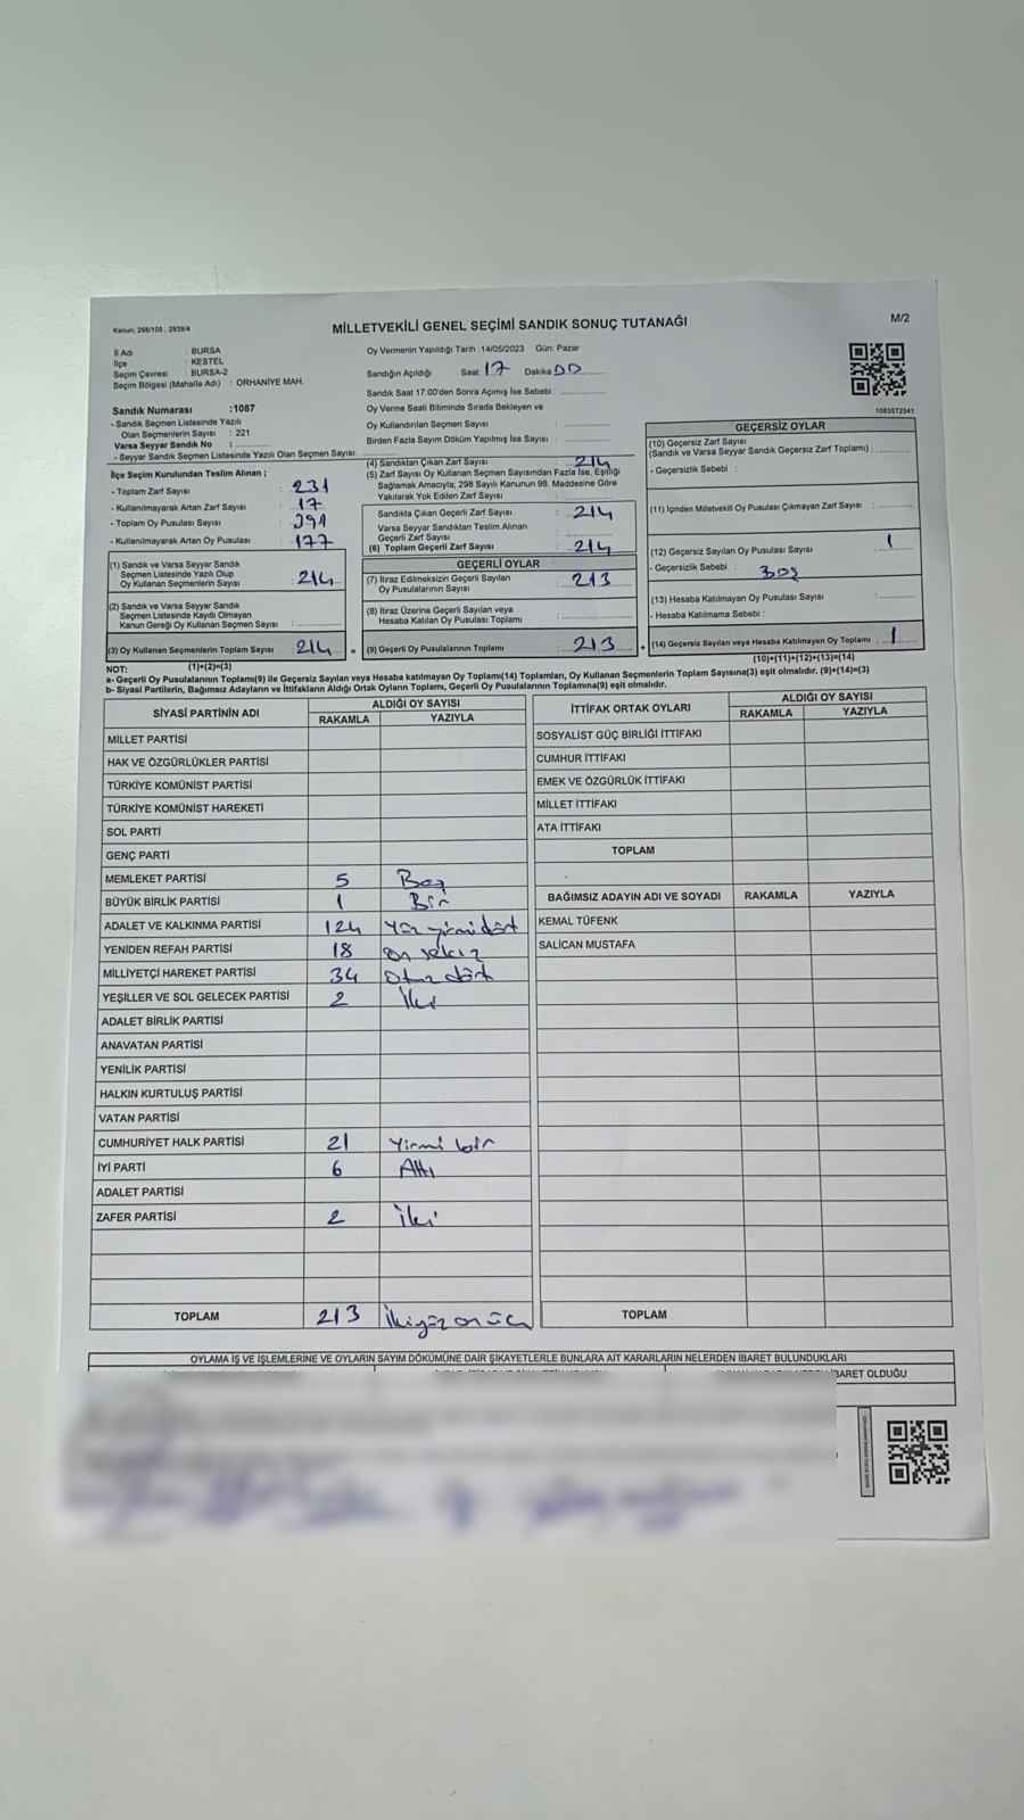 Kanun: 298/105 , 2839/4
MİLLETVEKİLİ GENEL SEÇİMİ SANDIK SONUÇ TUTANAĞI
M/2
İl Adı : BURSA
İlçe : KESTEL
Seçim Çevresi : BURSA-2
Seçim Bölgesi (Mahalle Adı) : ORHANİYE MAH.
Sandık Numarası :1087
- Sandık Seçmen Listesinde Yazılı
Olan Seçmenlerin Sayısı : 221
Varsa Seyyar Sandık No :
- Seyyar Sandık Listesinde Yazılı Olan Seçmen Sayısı
Oy Vermenin Yapıldığı Tarih :14/05/2023 Gün: Pazar
Sandığın Açıldığı Saat 17 Dakika 00
Sandık Saat 17.00'den Sonra Açımış İse Sebebi :
Oy Verme Saati Bitiminde Sırada Bekleyen ve
Oy Kullandırılan Seçmen Sayısı :
Birden Fazla Sayım Döküm Yapılmış İse Sayısı :
İlçe Seçim Kurulundan Teslim Alınan :
- Toplam Zarf Sayısı : 231
- Kullanılmayarak Artan Zarf Sayısı : 17
- Toplam Oy Pusulası Sayısı : 391
- Kullanılmayarak Artan Oy Pusulası : 177
(1) Sandık ve Varsa Seyyar Sandık
Seçmen Listesinde Yazılı Olup
Oy Kullanan Seçmenlerin Sayısı : 214
(2) Sandık ve Varsa Seyyar Sandık
Seçmen Listesinde Kaydı Olmayan
Kanun Gereği Oy Kullanan Seçmen Sayısı :
(3) Oy Kullanan Seçmenlerin Toplam Sayısı 214
(1)+(2)=(3)
(4) Sandıktan Çıkan Zarf Sayısı : 214
(5) Zarf Sayısı Oy Kullanan Seçmen Sayısından Fazla İse, Eşitliği
Sağlamak Amacıyla, 298 Sayılı Kanunun 98. Maddesine Göre
Yakılarak Yok Edilen Zarf Sayısı :
Sandıkta Çıkan Geçerli Zarf Sayısı : 214
Varsa Seyyar Sandıktan Teslim Alınan
Geçerli Zarf Sayısı :
(6) Toplam Geçerli Zarf Sayısı : 214
GEÇERLİ OYLAR
(7) İtiraz Edilmeksizin Geçerli Sayılan
Oy Pusulalarının Sayısı : 213
(8) İtiraz Üzerine Geçerli Sayılan veya
Hesaba Katılan Oy Pusulası Toplamı :
(9) Geçerli Oy Pusulalarının Toplamı : 213
1083572941
GEÇERSİZ OYLAR
(10) Geçersiz Zarf Sayısı
(Sandık ve Varsa Seyyar Sandık Geçersiz Zarf Toplamı) :
- Geçersizlik Sebebi :
(11) İçinden Milletvekili Oy Pusulası Çıkmayan Zarf Sayısı :
(12) Geçersiz Sayılan Oy Pusulası Sayısı : 1
- Geçersizlik Sebebi : Boş
(13) Hesaba Katılmayan Oy Pusulası Sayısı :
- Hesaba Katılmama Sebebi :
(14) Geçersiz Sayılan veya Hesaba Katılmayan Oy Toplamı : 1
(10)+(11)+(12)+(13)=(14)
NOT:
a- Geçerli Oy Pusulalarının Toplamı(9) ile Geçersiz Sayılan veya Hesaba katılmayan Oy Toplamı(14) Toplamları, Oy Kullanan Seçmenlerin Toplam Sayısına(3) eşit olmalıdır. (9)+(14)=(3)
b- Siyasi Partilerin, Bağımsız Adayların ve İttifakların Aldığı Ortak Oyların Toplamı, Geçerli Oy Pusulalarının Toplamına(9) eşit olmalıdır.
SİYASİ PARTİNİN ADI ALDIĞI OY SAYISI
RAKAMLA YAZIYLA
MİLLET PARTİSİ
HAK VE ÖZGÜRLÜKLER PARTİSİ
TÜRKİYE KOMÜNİST PARTİSİ
TÜRKİYE KOMÜNİST HAREKETİ
SOL PARTİ
GENÇ PARTİ
MEMLEKET PARTİSİ 5 Beş
BÜYÜK BİRLİK PARTİSİ 1 Bir
ADALET VE KALKINMA PARTİSİ 124 Yüz yirmi dört
YENİDEN REFAH PARTİSİ 18 on sekiz
MİLLİYETÇİ HAREKET PARTİSİ 34 Otuz dört
YEŞİLLER VE SOL GELECEK PARTİSİ 2 İki
ADALET BİRLİK PARTİSİ
ANAVATAN PARTİSİ
YENİLİK PARTİSİ
HALKIN KURTULUŞ PARTİSİ
VATAN PARTİSİ
CUMHURİYET HALK PARTİSİ 21 Yirmi bir
İYİ PARTİ 6 Altı
ADALET PARTİSİ
ZAFER PARTİSİ 2 İki
TOPLAM 213 İkiyüz onüç
İTTİFAK ORTAK OYLARI ALDIĞI OY SAYISI
RAKAMLA YAZIYLA
SOSYALİST GÜÇ BİRLİĞİ İTTİFAKI
CUMHUR İTTİFAKI
EMEK VE ÖZGÜRLÜK İTTİFAKI
MİLLET İTTİFAKI
ATA İTTİFAKI
TOPLAM
BAĞIMSIZ ADAYIN ADI VE SOYADI RAKAMLA YAZIYLA
KEMAL TÜFENK
SALİCAN MUSTAFA
TOPLAM
OYLAMA İŞ VE İŞLEMLERİNE VE OYLARIN SAYIM DÖKÜMÜNE DAİR ŞİKAYETLERLE BUNLARA AİT KARARLARIN NELERDEN İBARET BULUNDUKLARI
BARET OLDUĞU